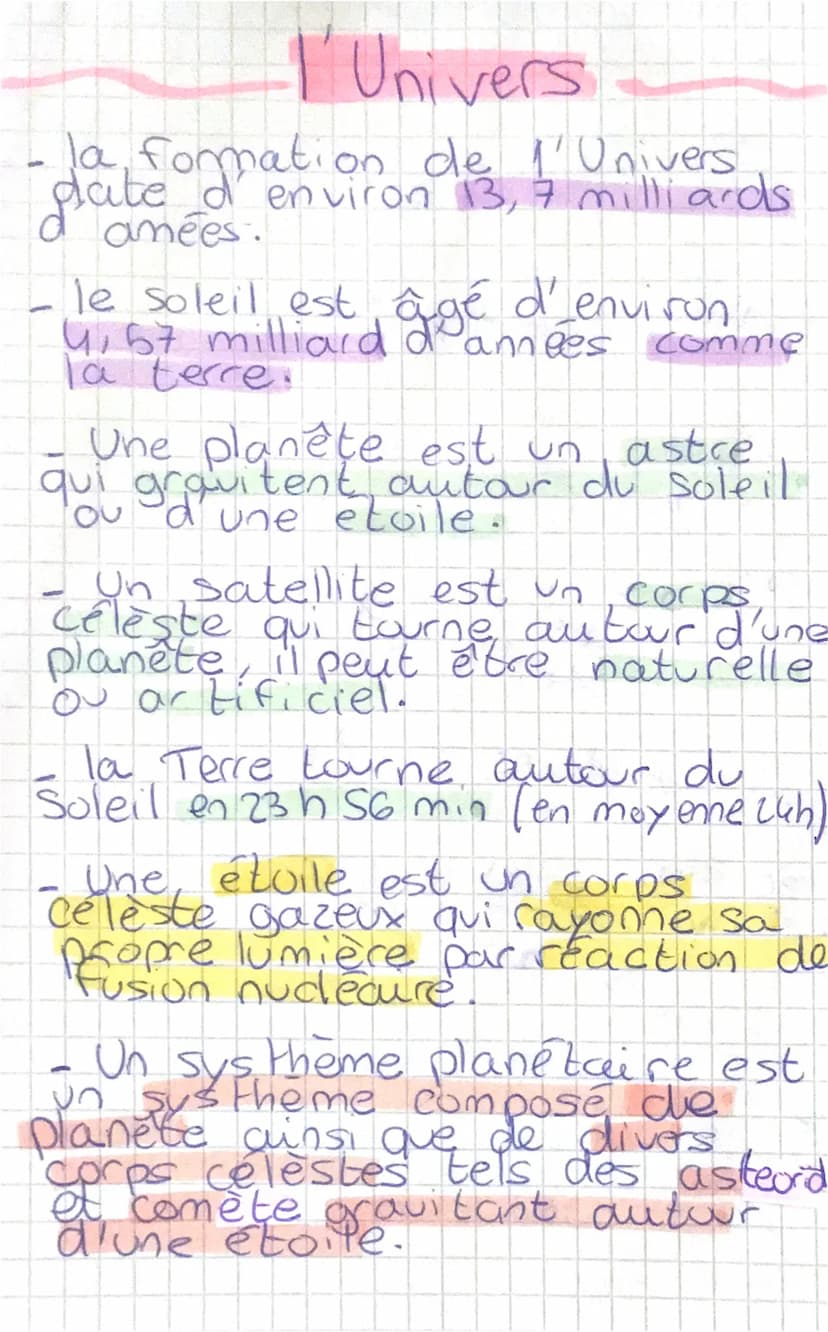 l'Univers
- la formation de l'Univers
date d'environ 13,7 milliards
d'amées.
- le soleil est âgé d'environ
4,57 milliard d'années comme
la terre.
- Une planête est un astre
qui gravitent autour du soleil
ou d'une etoile.
- Un satellite est un corps
célèste qui tourne autour d'une
planête, il peut être naturelle
ou artificiel.
- la Terre tourne autour du
Soleil en 23h 56 min (en moyenne 24h)
- Une étoile est un corps
célèste gazeux qui rayonne sa
propre lumière par réaction de
fusion nucléaire.
- Un systhème planétaire est
un systhème composé de
planète ainsi que de divers
corps célèstes tels des asteord
et comète gravitant autour
d'une étoile.